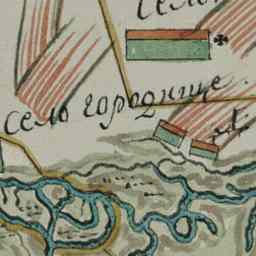 село
село городище